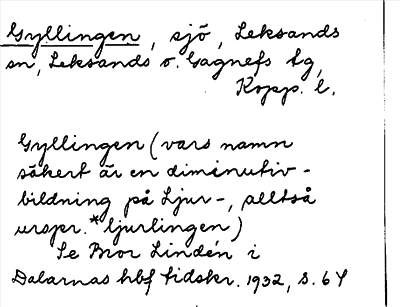 Gyllingen, sjö, Leksands
sn, Leksands o. Gagnefs tg,
Kopp. l.
Gyllingen (vars namn
säkert är en diminutiv-
bildning på Ljur-, alltså
urspr. *ljurlingen)
Se Bror Lindén i
Dalarnas hbf tidskr. 1932, s. 64